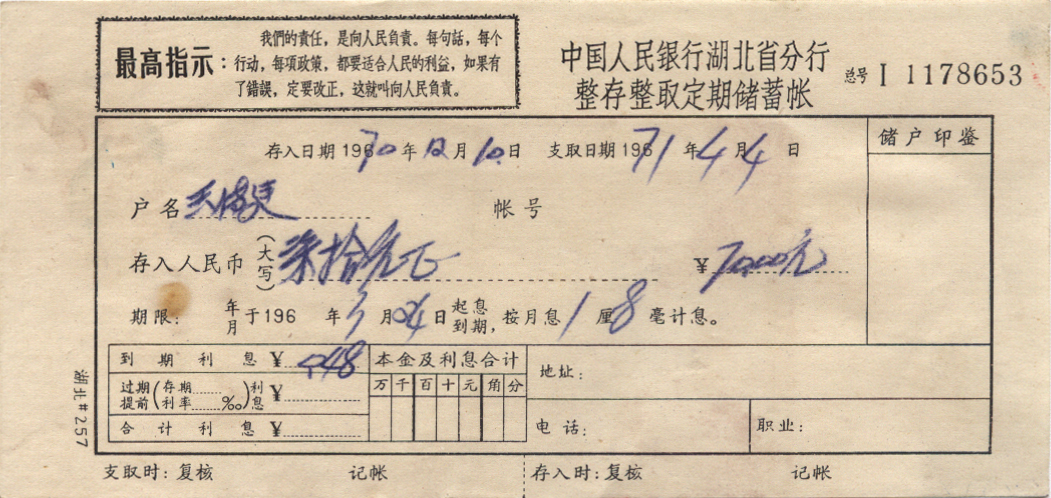 最高指示:
我們的責任，是向人民負責。每句話，每个
行动，每項政策，都要适合人民的利益，如果有
了錯誤，定要改正，这就叫向人民負責。
中国人民银行湖北省分行
整存整取定期储蓄帐
总号 I 1178653
存入日期 196 70 年 12 月 10 日 支取日期 196 71 年 4 月 4 日
储户印鉴
户名
帐号
存入人民币 (大写) 柒拾元正 ¥ 70.00元
期限: 年月于196 年 月 日 起息到期，按月息 1 厘 8 毫计息。
到期利息 ¥ 0.48
过期提前 (存期 利率 ‰) 利息 ¥
合计利息 ¥
本金及利息合计
万 千 百 十 元 角 分
地址:
电话:
职业:
湖北#257
支取时: 复核 记帐 存入时: 复核 记帐